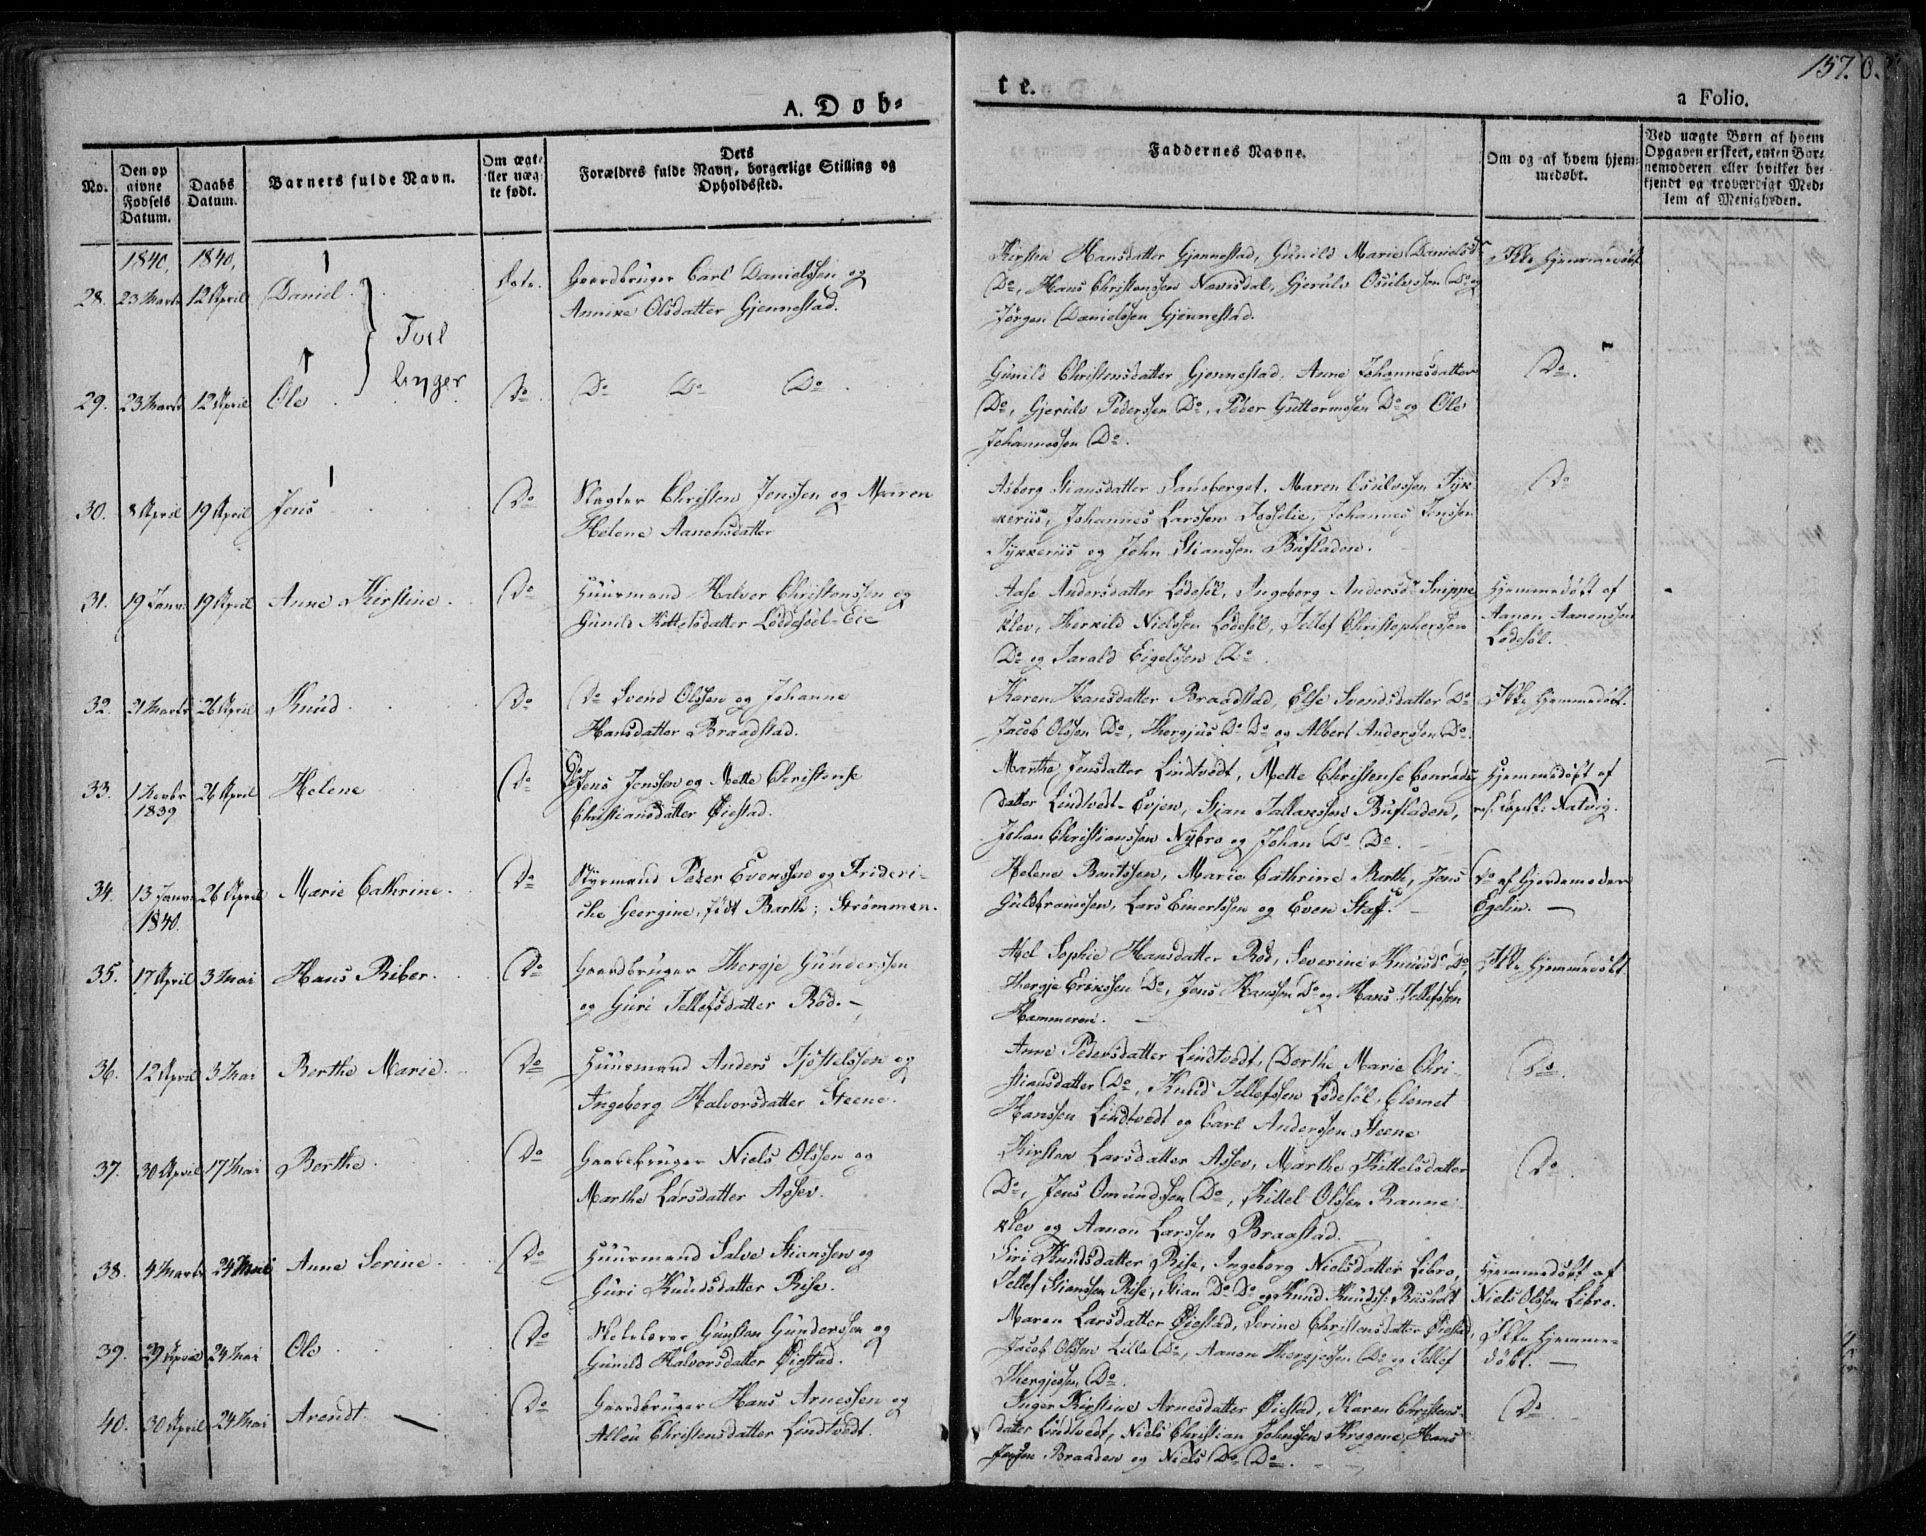 157.
A. Døb-
te.
a Folio.
No.
Den op
givne
Fødsels
Datum.
Daabs
Datum.
Barnets fulde Navn.
Om ægte
eller uæg
te født.
Ders
Forældres fulde Navn, borgerlige Stilling og
Opholdssted.
Faddernes Navne.
Om og af hvem hjem-
medøbt.
Ved uægte Børn af hvem
Opgaven er skeet, enten Bar-
nemoderen eller hvilket be-
kjendt og troværdigt Med-
lem af Menigheden.
1840, 1840,
28. 23 Marts 12 April Daniel. Egte. Gaardbruger Carl Danielsen og
Annike Olsdatter Gjennestad.
Kirsten Hansdatter Gjennestad, Gunild Marie Danielsdr
Do, Hans Christensen Navisdal, Gjerulv Osulvssen Do og
Jørgen Danielssen Gjennestad.
Ikke Hjemmedøbt
Tvil
linger
29. 23 Marts 12 April Ole Do. Do Do Do
Gunild Christensdatter Gjennestad, Anne Johannesdatter
Do, Gjerulv Pederssen Do, Peder Guttormssen Do og Ole
Johannessen Do.
Do.
30. 8 April 19 April Jens Do Slagter Christen Jenssen og Maren
Helene Aanensdatter
Asborg Stiansdatter Sandberget, Maren Osulvssen Tyk-
keriis, Johannes Larssen Fosselie, Johannes Jenssen
Tykkeriis og John Stianssen Bufladen.
Do
31. 19 Janv. 19 April Anne Kirstine. Do Huusmand Halvor Christenssen og
Gunild Kittelsdatter Løddesøl-Eie
Aase Andersdatter Lødesøl, Ingeborg Andersdr Snippe
klev, Therkild Nielssen Lødesøl, Tellef Christopherssen
Do og Tarald Eigelssen Do.
Hjemmedøbt af
Aanon Aanonssen
Lødesøl.
32. 21 Marts 26 April Knud Do Do Svend Olssen og Johanne
Hansdatter Braadstad.
Karen Hansdatter Braadstad, Else Svendsdatter Do
Jacob Olssen Do, Thergius Do Do og Albert Anderssen Do.
Ikke Hjemmedøbt.
33. 1 Novbr 26 April Helene Do Do Jens Jenssen og Mette Christense
1839 Christiansdatter Øiestad.
Marthe Jensdatter Lindtvedt, Mette Christense Conrads-
datter Lindtvedt-Eejen, Stian Tallakssen Bufladen,
Johan Christianssen Nybro og Johan Do Do.
Hjemmedøbt af
res. Capell: Natvig.
34. 13 Janv. 26 April Marie Cathrine. Do Styrmand Peder Evenssen og Frideri-
1840. cke Georgine, født Barth; Strømmen.
Helene Berntssen, Marie Cathrine Barth, Jens
Guldbrandsen, Lars Einertssen og Even Staff.
Do af Gjordemoder
Egelin.
35. 17 April 3 Mai Hans Riber. Do Gaardbruger Thergje Gunderssen
og Guri Tellefsdatter Rød.
Abel Sophie Hansdatter Rød, Severine Knudsdr Do,
Thergje Erikssen Do, Jens Hanssen Do og Hans Tellefssen
Hammeren.
Ikke Hjemmedøbt
36. 12 April 3 Mai Berthe Marie. Do Huusmand Anders Tjøstelssen og
Ingeborg Halvorsdatter Steene.
Anne Pedersdatter Lindtvedt, Dorthe Marie Chri-
stiansdatter Do, Knud Tellefssen Lødesøl, Clemet
Hanssen Lindtvedt og Carl Anderssen Steene
Do.
37. 30 April 17 Mai Berthe Do Gaardbruger Niels Olssen og
Marthe Larsdatter Assev.
Kirsten Larsdatter Assev, Marthe Kittelsdatter
Do, Jens Omundsen Do, Kittel Olssen Ranne-
klev og Aanon Larssen Braastad.
Do.
38. 4 Marts 24 Mai Anne Serine. Do Huusmand Salve Stianssen og
Guri Knudsdatter Rise.
Siri Knudsdatter Rise, Ingeborg Nielsdatter Libro,
Tellef Stianssen Rise, Stian Do Do og Knud Knuds: Riisholt
Hjemmedøbt af
Niels Olssen Libro.
39. 29 April 24 Mai Ole Do Gunsten Gunderssen og
Gunild Halvorsdatter Øiestad.
Maren Larsdatter Øiestad, Serine Christensdatter Øiestad,
Jacob Olssen Lille Do, Aanon Thergjessen Do og Tellef
Thergjessen Do.
Ikke Hjemme-
døbt.
40. 30 April 24 Mai Arendt. Do Gaardbruger Hans Arnessen og
Alleu Christensdatter Lindtvedt.
Inger Kirstine Arnesdatter Øiestad, Karen Christens-
datter Lindtvedt, Niels Christian Johnssen Krogene, Hans
Jenssen Braaden og Niels Do Do.
Do